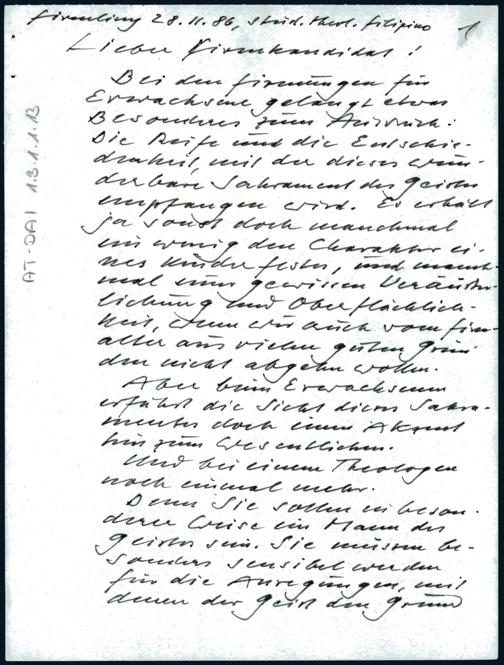 Firmling 28.11.86, stud. theol. Filipino
1
Lieber Firmkandidat!
Bei den Firmungen für
Erwachsene gelangt etwas
Besonderes zum Ausdruck:
Die Reife und die Entschie-
denheit, mit der dieses wun-
derbare Sakrament des Geistes
empfangen wird. Es erhält
ja sonst doch manchmal
ein wenig den Charakter ei-
nes Kinderfestes, und manch-
mal einer gewissen Veräußer-
lichung und Oberflächlich-
keit, wenn wir auch vom Firm-
alter aus vielen guten Grün-
den nicht abgehn wollen.
Aber beim Erwachsenen
erfährt die Sicht dieses Sakra-
mentes doch einen Akzent
hin zum Wesentlichen.
Und bei einem Theologen
noch einmal mehr.
Denn Sie sollen in beson-
derer Weise ein Mann des
Geistes sein. Sie müssen be-
sonders sensibel werden
für die Anregungen, mit
denen der Geist den Grund
AT-DAI 1.3.1.1.13